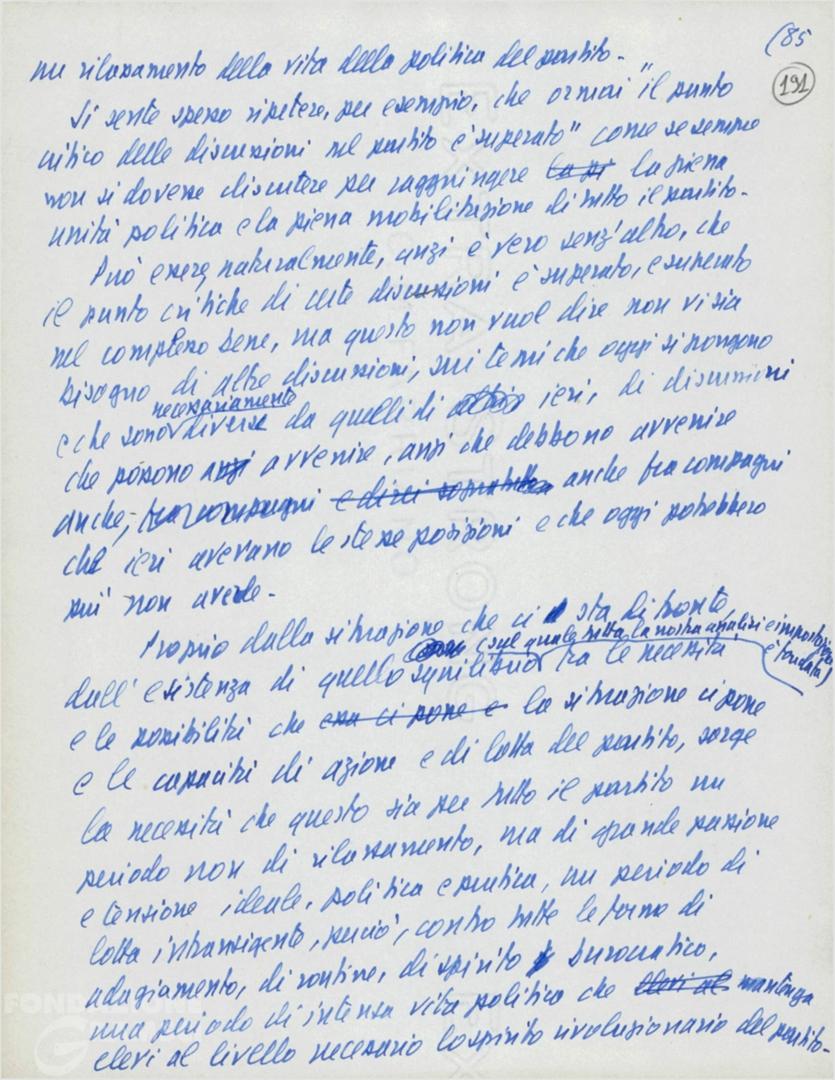 (85
191
un rilassamento della vita della politica del partito.
Si sente spesso ripetere, per esempio, che ormai "il punto
critico delle discussioni nel partito è superato" come se sempre
non si dovesse discutere per raggiungere la pi la piena
unità politica e la piena mobilitazione di tutto il partito.
Può essere, naturalmente, anzi è vero senz'altro, che
il punto critiche di certe discussioni è superato, e superato
nel complesso bene, ma questo non vuol dire non vi sia
bisogno di altre discussioni, sui temi che oggi si pongono
necessariamente
e che sono diverse da quelli di ieri, di discussioni
che possono anzi avvenire, anzi che debbono avvenire
anche, tra compagni e direi soprattutto anche tra compagni
che ieri avevano le stesse posizioni e che oggi potrebbero
più non averle.
Proprio dalla situazione che ci sta di fronte,
(sul quale tutta la nostra analisi e impostazione
è fondata)
dall'esistenza di quello squilibrio tra le necessità
e le possibilità che essa ci pone e la situazione ci pone
e le capacità di azione e di lotta del partito, sorge
la necessità che questo sia per tutto il partito un
periodo non di rilassamento, ma di grande passione
e tensione ideale, politica e pratica, un periodo di
lotta intransigente, perciò, contro tutte le forme di
adagiamento, di routine, di spirito burocratico,
una periodo di intensa vita politica che elevi al mantenga
elevi al livello necessario lo spirito rivoluzionario del partito.
FONDAZIONE